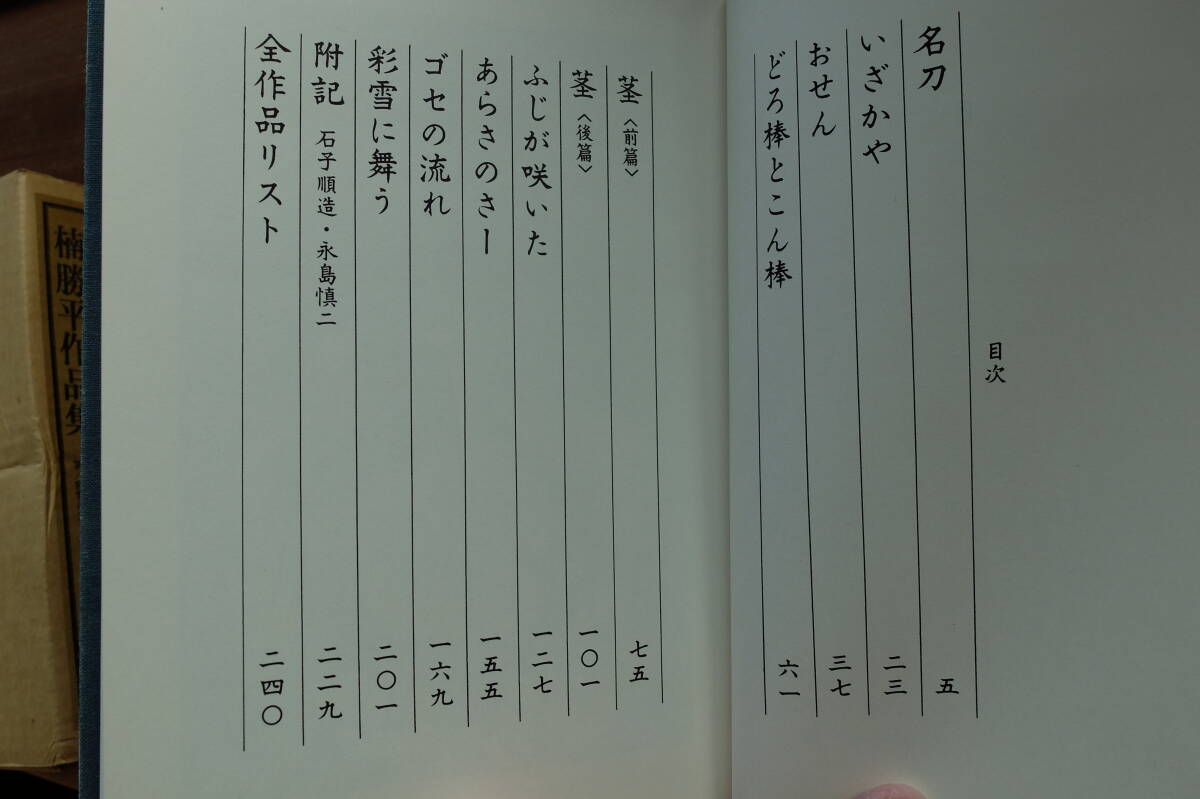 目次
名刀 五
いざかや 二三
おせん 三七
どろ棒とこん棒 六一
茎〈前篇〉 七五
茎〈後篇〉 一〇一
ふじが咲いた 一二七
あらさのさー 一五五
ゴセの流れ 一六九
彩雪に舞う 二〇一
附記 石子順造・永島慎二 二二九
全作品リスト 二四〇
楠勝平作品集